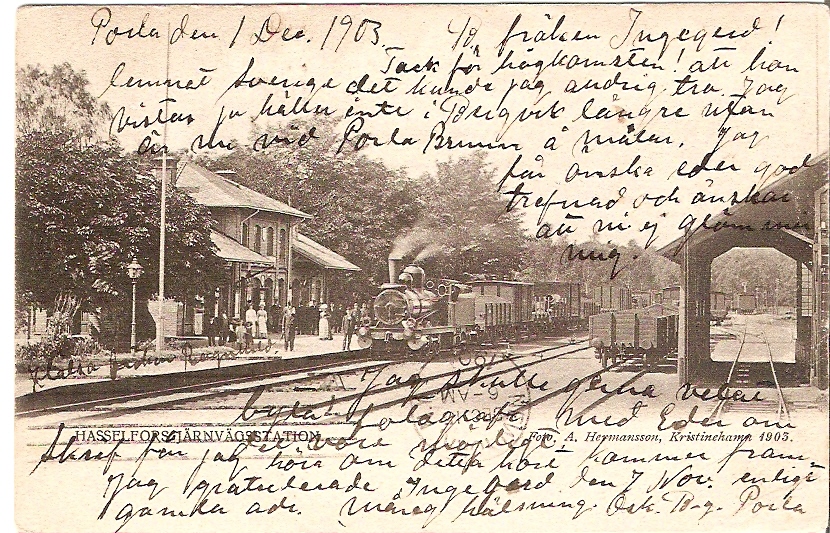 Porla den 1 Dec. 1903.
fröken Ingegerd!
Tack för hågkomsten! att han
lemnat Sverige det kunde jag aldrig tro. Jag
vistas ju håller inte i Brigvik längre utan
är nu vid Porla Brunn å målar. Jag
får önska eder god
trefnad och önskar
att ni ej glömmer
mig.
Hälsa
Jag skulle gerna velat
byta fotografi med Eder om
det vore möjligt.
HASSELFORS JÄRNVÄGSSTATION.
Foto. A. Hermansson, Kristinehamn 1903.
skref får jag höra om detta kort kommer fram.
Jag gratulerade Ingegerd den 7 Nov. enligt
gamla adr. Många hälsning. Osk. B-g. Porla